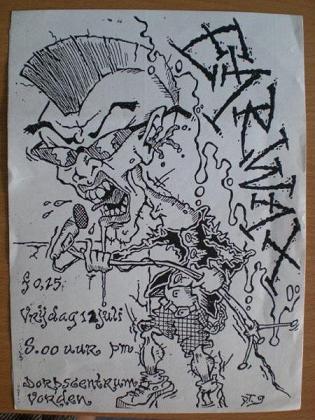 EARWAX
f 0,15
Vrijdag 12 juli
8.00 uur pm
Dorpscentrum
Vorden